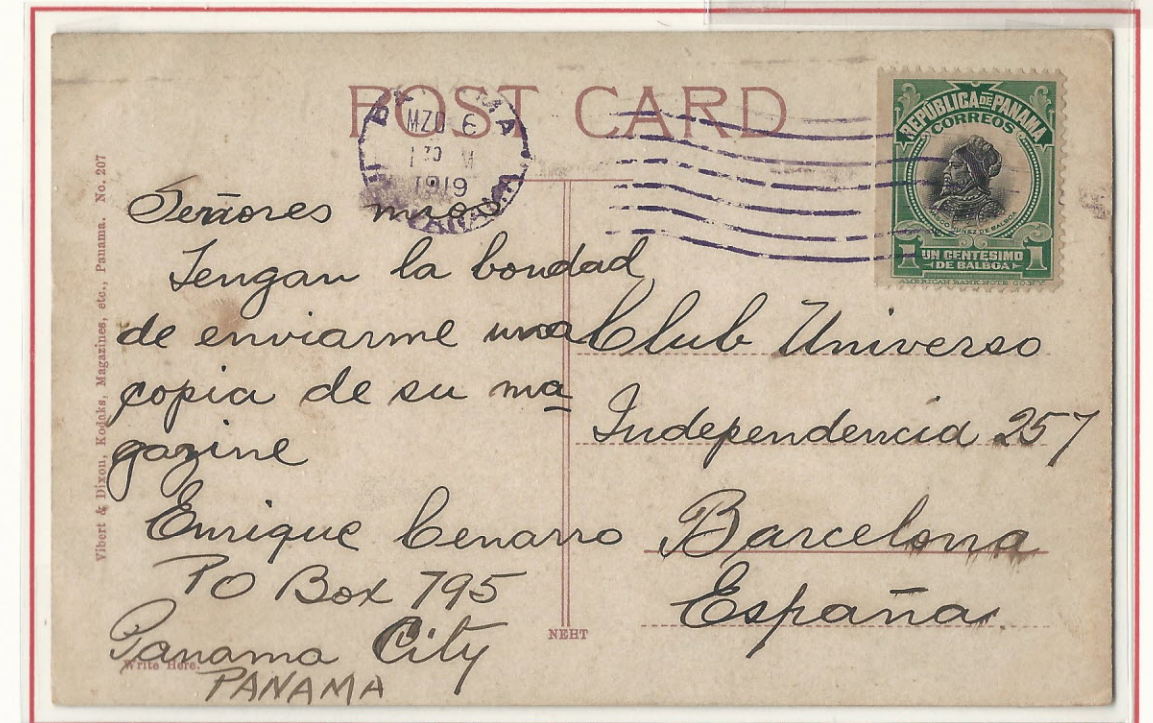 POST CARD
MZO 3
1 30 M
1919
PANAMA
REPÚBLICA DE PANAMA
CORREOS
NUÑEZ DE BALBOA
1 UN CENTESIMO 1
DE BALBOA
AMERICAN BANK NOTE CO. N.Y.
Vibert & Dixon, Kodaks, Magazines, etc., Panama. No. 207
Señores mios
Tengan la bondad
de enviarme una
copia de su ma
gazine
Enrique Cenarro
PO Box 795
Panama City
PANAMA
Write Here.
NEHT
Club Universo
Independencia 257
Barcelona
España.